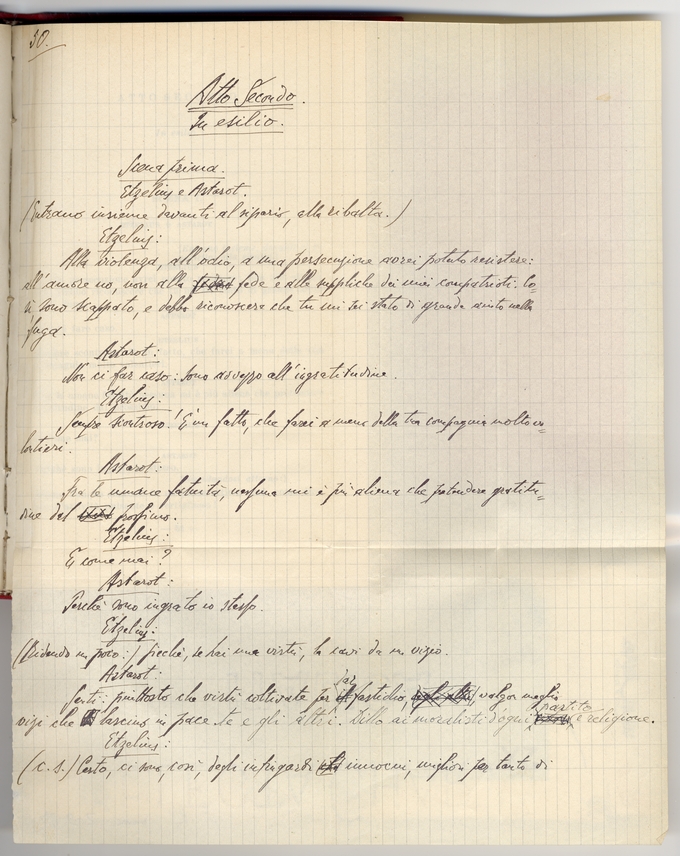 30.
Atto Secondo.
In esilio.
Scena prima.
Etzelius e Astarot.
(Entrano insieme davanti al sipario, alla ribalta.)
Etzelius:
Alla violenza, all'odio, a una persecuzione avrei potuto resistere:
all'amore no, non alla fede e alle suppliche dei miei compatrioti. Co-
sì sono scappato, e debbo riconoscere che tu mi sei stato di grande aiuto nella
fuga.
Astarot:
Non ci far caso: sono avvezzo all'ingratitudine.
Etzelius:
Sempre scontroso! È un fatto, che farei a meno della tua compagnia molto vo=
lentieri.
Astarot:
Fra le umane fatuità, nessuna mi è più aliena che pretendere gratitu=
dine dal prossimo.
Etzelius:
E come mai?
Astarot:
Perchè sono ingrato io stesso.
Etzelius:
(Ridendo un poco:) sicchè, se hai una virtù, la cavi da un vizio.
Astarot:
Senti: piuttosto che virtù coltivate per far fastidio, valgon meglio
vizi che lascino in pace te e gli altri. Dillo ai moralisti d'ogni partito e religione.
Etzelius:
(c.s.) Certo, ci sono, così, degli infingardi innocui, migliori per tanto di